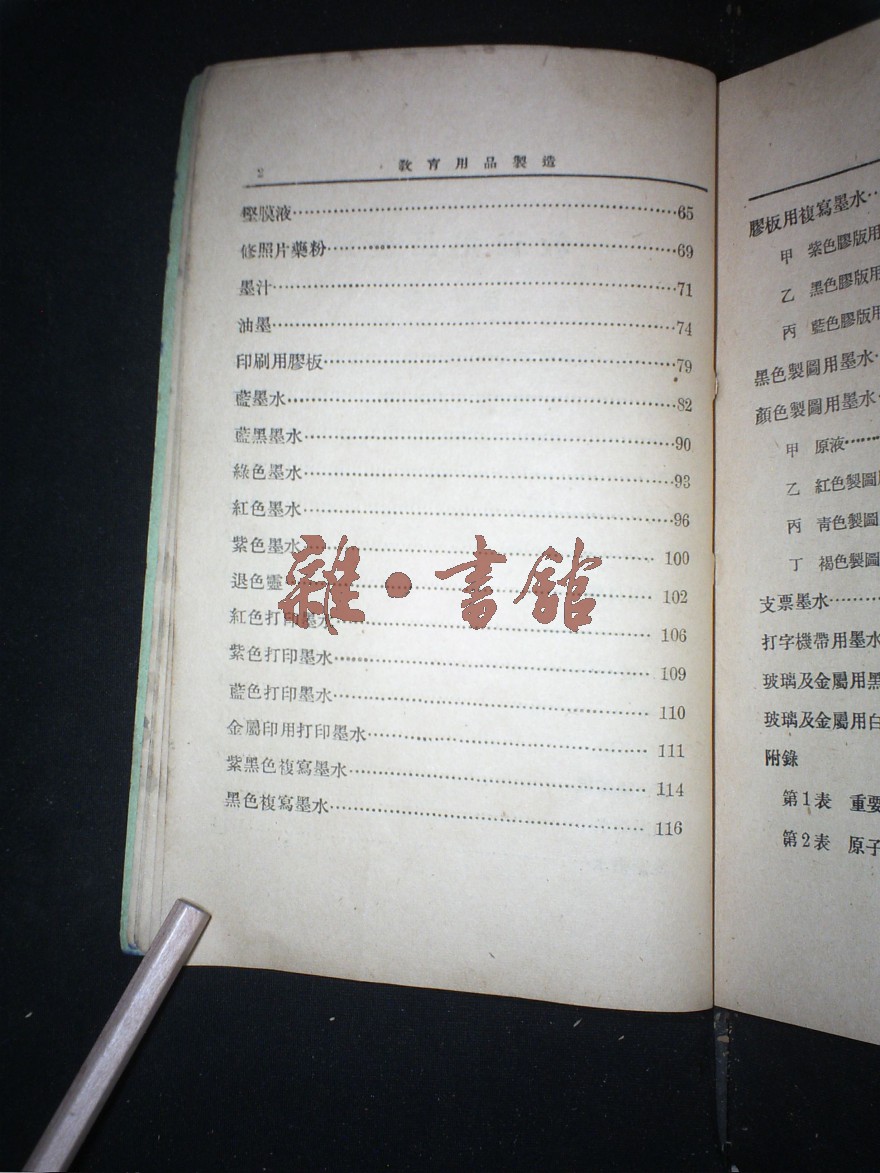 2
教育用品製造
堅膜液……65
修照片藥粉……69
墨汁……71
油墨……74
印刷用膠板……79
藍墨水……82
藍黑墨水……90
綠色墨水……93
紅色墨水……96
紫色墨水……100
退色靈……102
紅色打印墨水……106
紫色打印墨水……109
藍色打印墨水……110
金屬印用打印墨水……111
紫黑色複寫墨水……114
黑色複寫墨水……116
雜·書館
膠板用複寫墨水…
甲 紫色膠版用
乙 黑色膠版用
丙 藍色膠版用
黑色製圖用墨水…
顏色製圖用墨水…
甲 原液……
乙 紅色製圖
丙 青色製圖
丁 褐色製圖
支票墨水……
打字機帶用墨水
玻璃及金屬用黑
玻璃及金屬用白
附錄
第1表 重要
第2表 原子